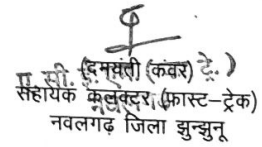 (दमयंती कंवर)
सहायक कलक्टर (फ़ास्ट-ट्रेक)
नवलगढ़ जिला झुन्झुनू